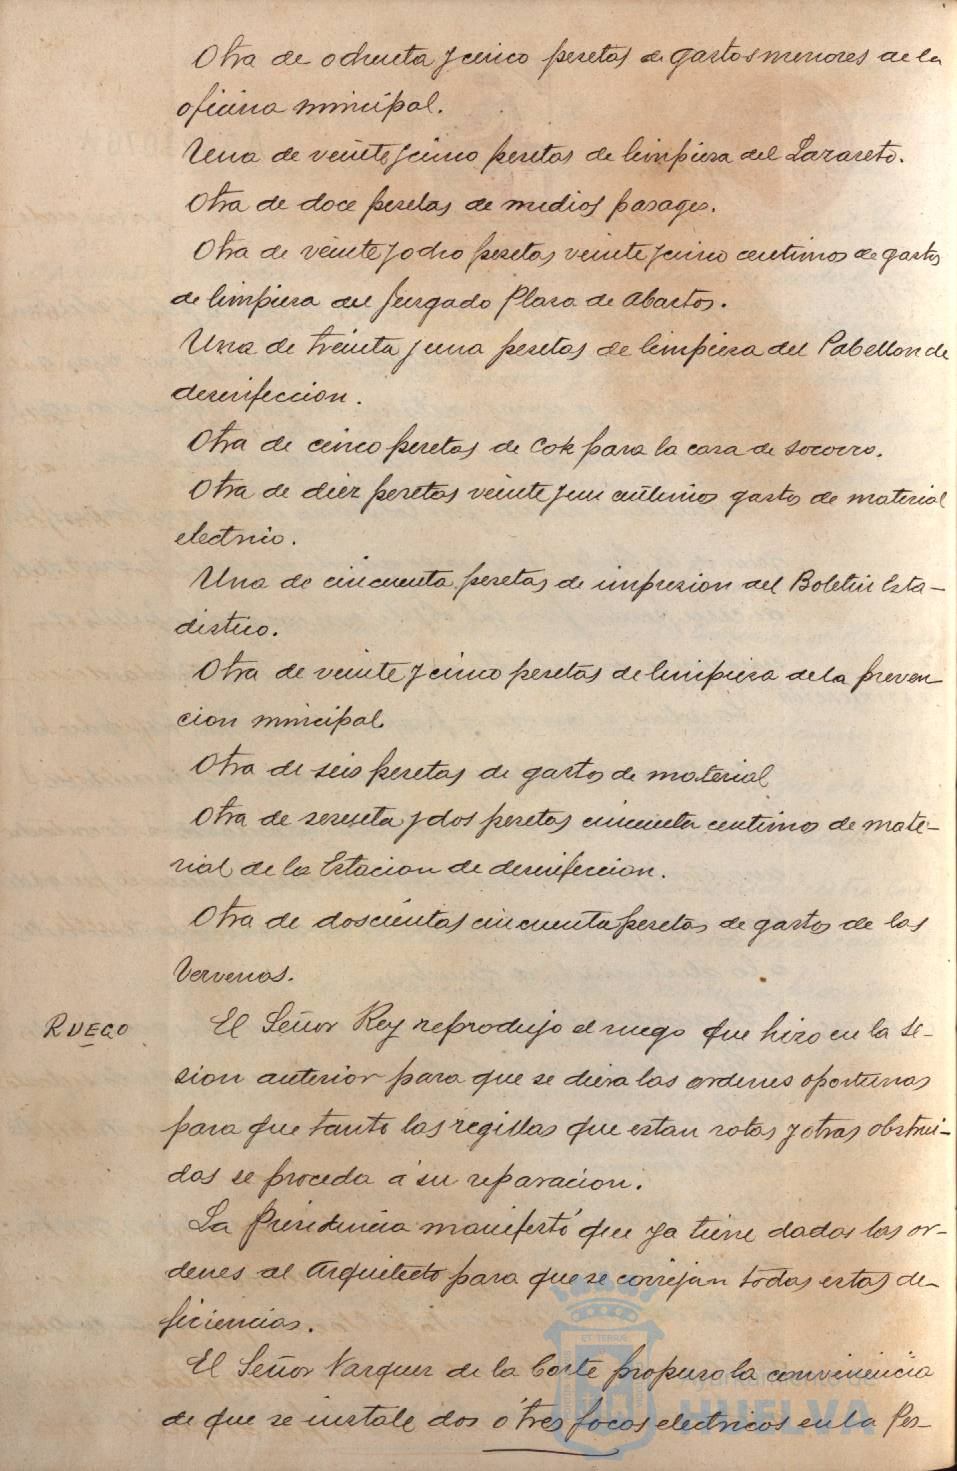 Otra de ochenta y cinco pesetas de gastos menores de la
oficina municipal.
Una de veinte y cinco pesetas de limpiesa del Lazareto.
Otra de doce pesetas de medios pasages.
Otra de veinte y ocho pesetas veinte y cinco centimos de gastos
de limpiesa del Juzgado Plasa de Abastos.
Una de treinta y una pesetas de limpiesa del Pabellon de
desinfeccion.
Otra de cinco pesetas de Cok para la casa de socorro.
Otra de diez pesetas veinte y un centimos gastos de material
electrico.
Una de cincuenta pesetas de impresion del Boletin Esta-
distico.
Otra de veinte y cinco pesetas de limpiesa de la preven-
cion municipal
Otra de seis pesetas de gastos de material
Otra de sesenta y dos pesetas cincuenta centimos de mate-
rial de la Estacion de desinfeccion.
Otra de doscientas cincuenta pesetas de gastos de las
Vervenas.
RUEGO
El Señor Rey reprodujo el ruego que hizo en la se-
sion anterior para que se diera las ordenes oportunas
para que tanto las regillas que estan rotas y otras obstrui-
das se proceda á su reparacion.
La Presidencia manifestó que ya tiene dadas las or-
denes al Arquitecto para que se corrijan todas estas de-
ficiencias.
El Señor Vazquez de la Corte propuso la conveniencia
de que se instale dos ó tres focos electricos en la Pes-
Ayuntamiento de
HUELVA